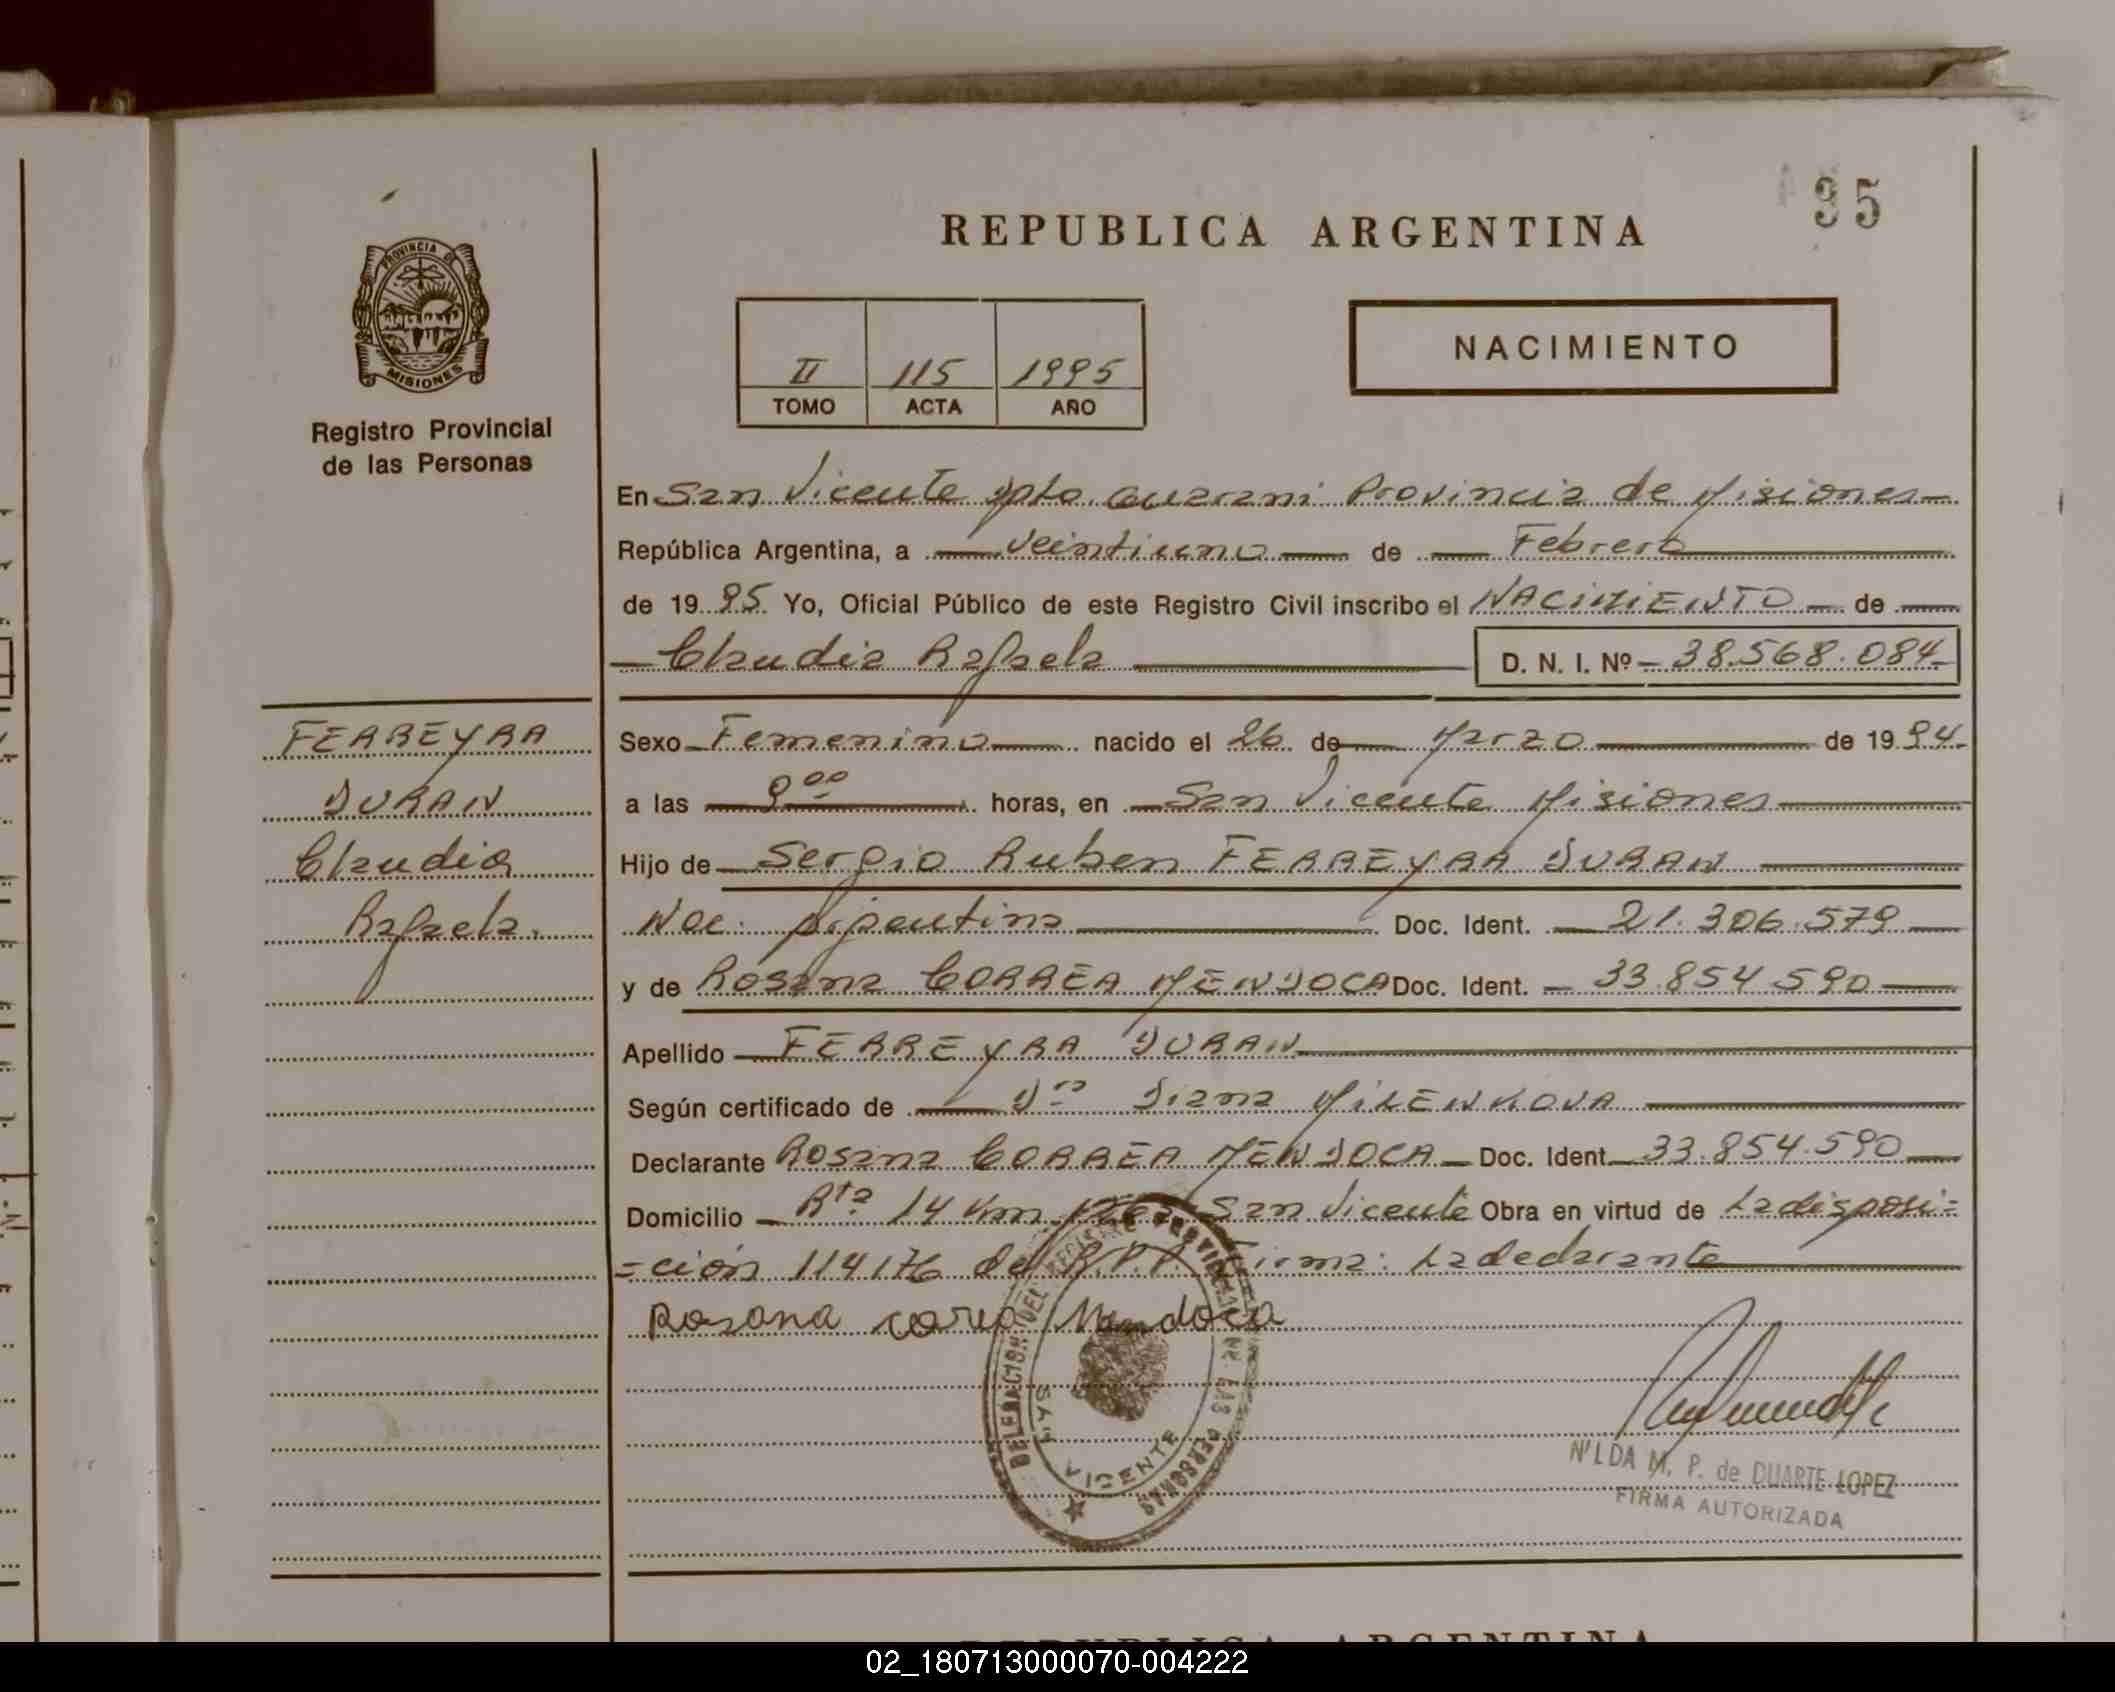 95
REPUBLICA ARGENTINA
PROVINCIA DE
MISIONES
Registro Provincial
de las Personas
II 115 1995
TOMO ACTA AÑO
NACIMIENTO
En San Vicente Dpto. Guarani Provincia de Misiones
República Argentina, a veintiuno de Febrero
de 1995 Yo, Oficial Público de este Registro Civil inscribo el NACIMIENTO de
Claudia Rafaela D. N. I. Nº 38.568.084
FERREYRA
DURAN
Claudia
Rafaela.
Sexo Femenino nacido el 26 de Marzo de 1994
a las 9 00 horas, en San Vicente Misiones
Hijo de Sergio Ruben FERREYRA DURAN
Nac. Argentina Doc. Ident. 21.306.579
y de Rosana CORREA MENDOCA Doc. Ident. 33.854.590
Apellido FERREYRA DURAN
Según certificado de Dra Diana MILENKOVA
Declarante Rosana CORREA MENDOCA Doc. Ident. 33.854.590
Domicilio Rta 14 Km San Vicente Obra en virtud de La disposi=
=ción 114176 del R.P.P. Firma: La declarante
Rosana correa Mendoca
DELEGACION DEL REGISTRO PROVINCIAL DE LAS PERSONAS
SAN VICENTE
NILDA M. P. de DUARTE LOPEZ
FIRMA AUTORIZADA
REPUBLICA ARGENTINA
02_180713000070-004222